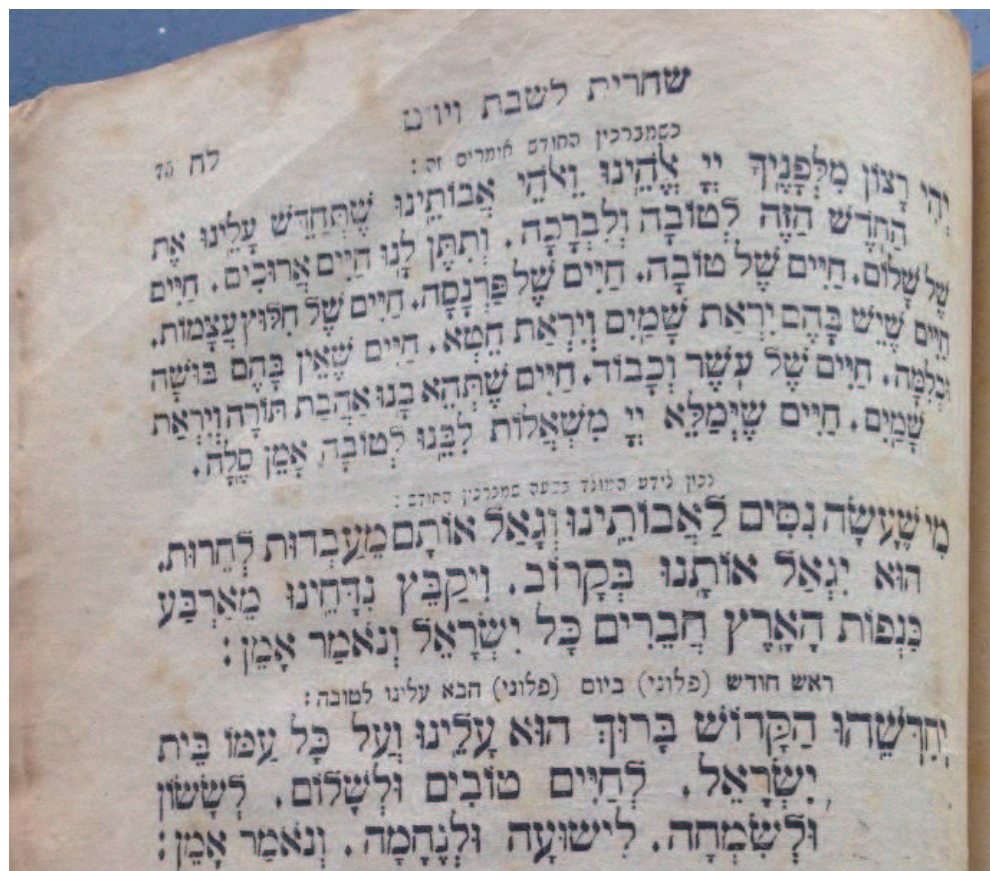 שחרית לשבת ויו״ט
לח
כשמברכין החודש אומרים זה:
יְהִי רָצוֹן מִלְּפָנֶיךָ יְיָ אֱלֹהֵינוּ וֵאלֹהֵי אֲבוֹתֵינוּ שֶׁתְּחַדֵּשׁ עָלֵינוּ אֶת
הַחֹדֶשׁ הַזֶּה לְטוֹבָה וְלִבְרָכָה. וְתִתֶּן לָנוּ חַיִּים אֲרוּכִים. חַיִּים
שֶׁל שָׁלוֹם. חַיִּים שֶׁל טוֹבָה. חַיִּים שֶׁל פַּרְנָסָה. חַיִּים שֶׁל חִלּוּץ עֲצָמוֹת.
חַיִּים שֶׁיֵּשׁ בָּהֶם יִרְאַת שָׁמַיִם וְיִרְאַת חֵטְא. חַיִּים שֶׁאֵין בָּהֶם בּוּשָׁה
וּכְלִמָּה. חַיִּים שֶׁל עֹשֶׁר וְכָבוֹד. חַיִּים שֶׁתְּהֵא בָנוּ אַהֲבַת תּוֹרָה וְיִרְאַת
שָׁמַיִם. חַיִּים שֶׁיְּמַלֵּא יְיָ מִשְׁאֲלוֹת לִבֵּנוּ לְטוֹבָה אָמֵן סֶלָה.
נכון לידע המולד בשעה שמברכין החודש:
מִי שֶׁעָשָׂה נִסִּים לַאֲבוֹתֵינוּ וְגָאַל אוֹתָם מֵעַבְדוּת לְחֵרוּת.
הוּא יִגְאַל אוֹתָנוּ בְּקָרוֹב. וִיקַבֵּץ נִדָּחֵינוּ מֵאַרְבַּע
כַּנְפוֹת הָאָרֶץ חֲבֵרִים כָּל יִשְׂרָאֵל וְנֹאמַר אָמֵן:
ראש חודש (פלוני) ביום (פלוני) הבא עלינו לטובה:
יְחַדְּשֵׁהוּ הַקָּדוֹשׁ בָּרוּךְ הוּא עָלֵינוּ וְעַל כָּל עַמּוֹ בֵּית
יִשְׂרָאֵל. לְחַיִּים טוֹבִים וּלְשָׁלוֹם. לְשָׂשׂוֹן
וּלְשִׂמְחָה. לִישׁוּעָה וּלְנֶחָמָה. וְנֹאמַר אָמֵן: